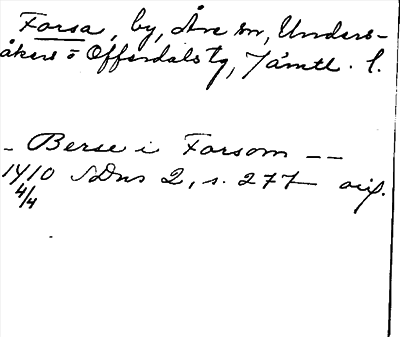 Forsa, by, Åre sn, Unders-
åkers o Offerdals tg, Jämtl. l.
- Berse i Forsom --
1410 SDns 2, s. 277 orig.
4/4